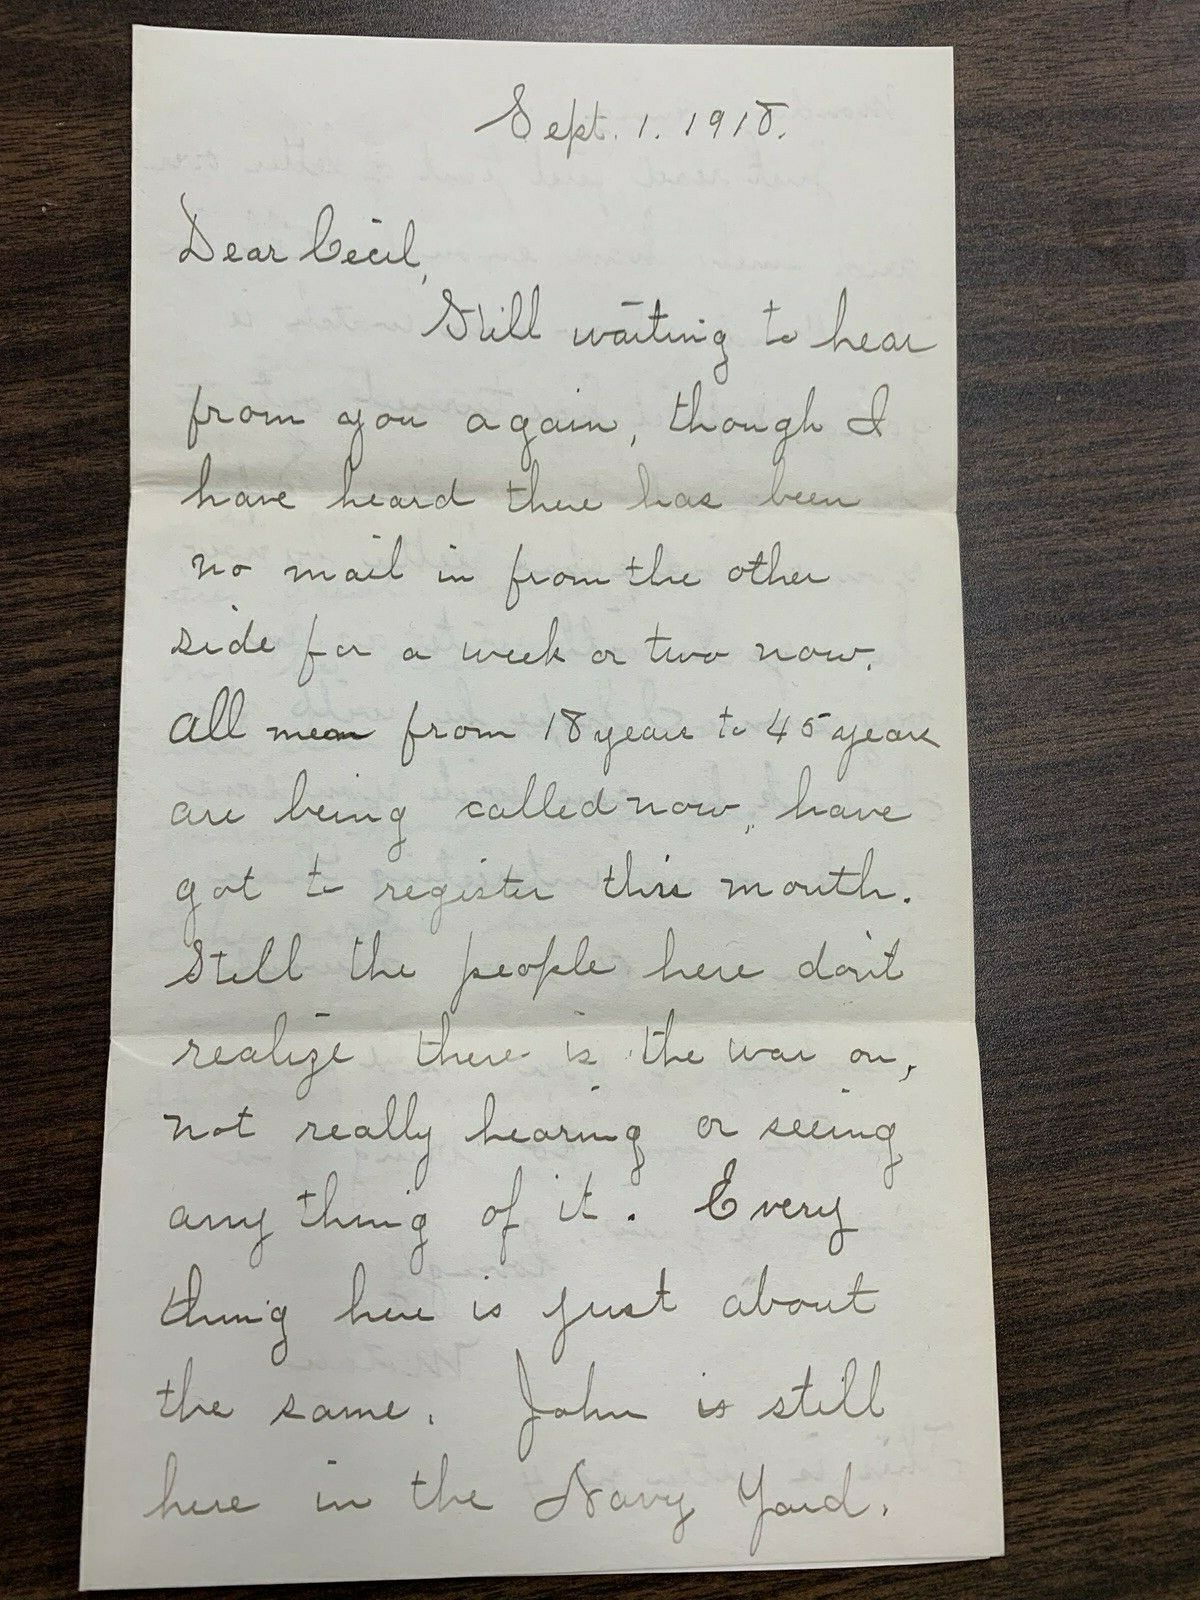 Sept. 1. 1918.
Dear Cecil,
Still waiting to hear
from you again, though I
have heard there has been
no mail in from the other
side for a week or two now.
All men from 18 years to 45 years
are being called now, have
got to register this month.
Still the people here don't
realize there is the war on,
not really hearing or seeing
any thing of it. Every
thing here is just about
the same. John is still
here in the Navy Yard.